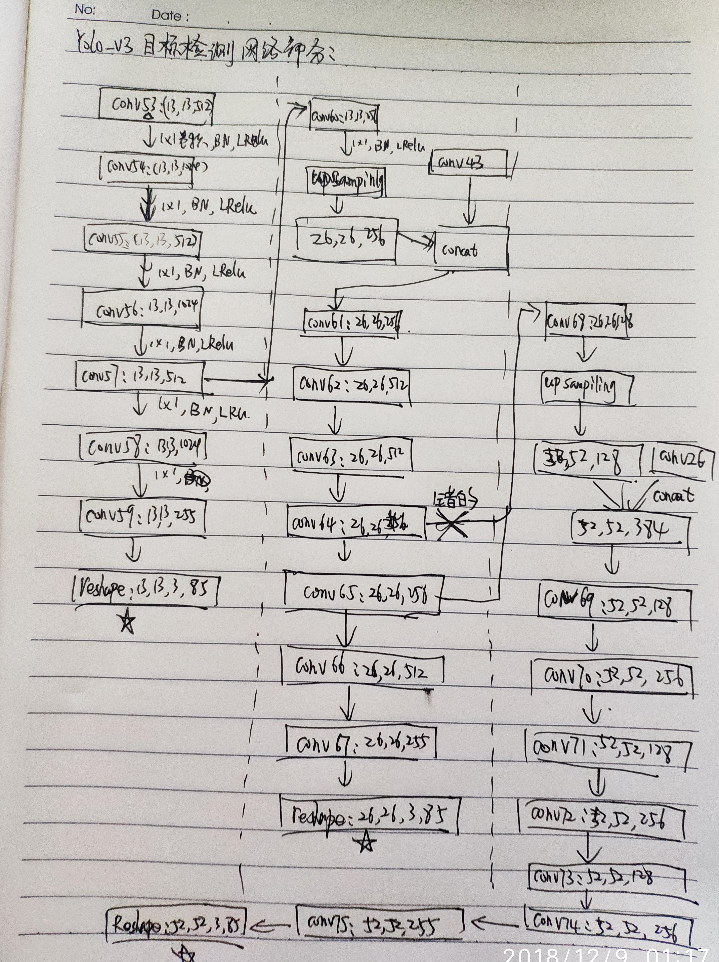 No:
Date:
Yolo_v3 目标检测网络
conv53:(13,13,512)
1x1卷积, BN, LRelu
conv54:(13,13,1024)
1x1, BN, LRelu
conv55:(13,13,512)
1x1, BN, LRelu
conv56:13,13,1024
1x1, BN, LRelu
conv57:13,13,512
1x1, BN, LRu.
conv58:13,13,1024
1x1,
conv59:13,13,255
reshape:13,13,3,85
conv60:13,13,256
1x1, BN, LRelu
upsamping
26,26,256
conv43
concat
conv61:26,26,256
conv62:26,26,512
conv63:26,26,512
conv64:26,26,256
conv65:26,26,256
conv66:26,26,512
conv67:26,26,255
reshape:26,26,3,85
conv68:26,26,128
upsampiling
52,52,128
conv26
concat
52,52,384
conv69:52,52,128
conv70:52,52,256
conv71:52,52,128
conv72:52,52,256
conv73:52,52,128
conv74:52,52,256
conv75:52,52,255
Reshape:52,52,3,85
2018/12/9 01:17